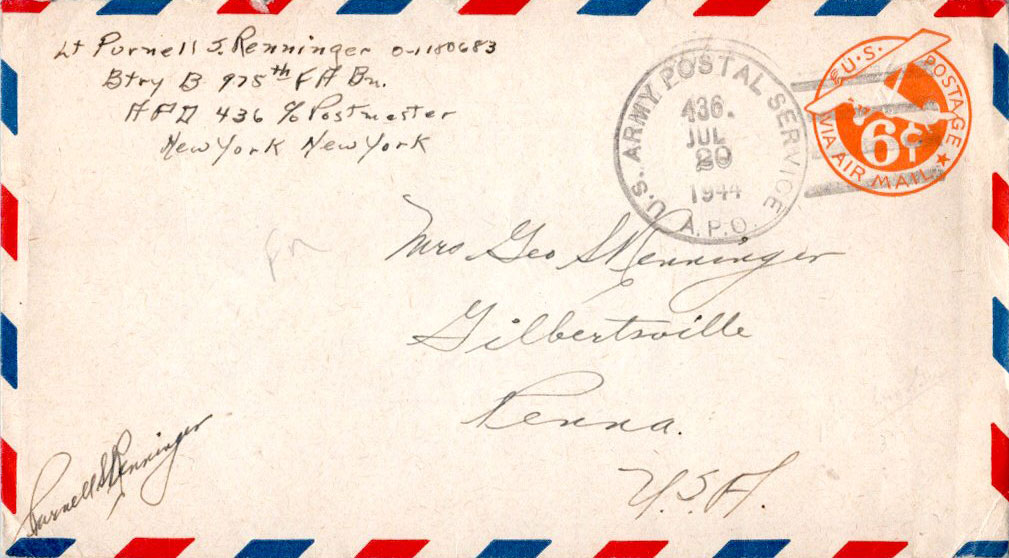 Lt Purnell S. Renninger O-1180683
Btry B. 975th F A Bn.
A P O 436 c/o Postmaster
New York New York
U.S. ARMY POSTAL SERVICE
436.
JUL
20
1944
A.P.O.
U.S. POSTAGE
6¢
VIA AIR MAIL
Mrs Geo S Renninger
Gilbertsville
Penna.
U.S.A.
Purnell S Renninger